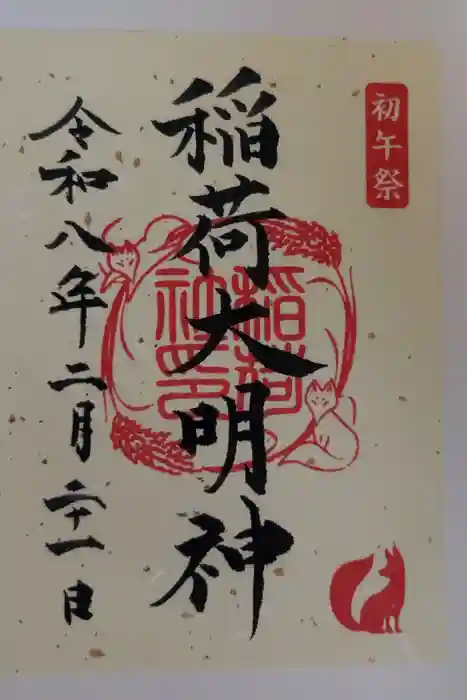 初午祭
稲荷大明神
稲荷
社印
令和八年二月二十一日